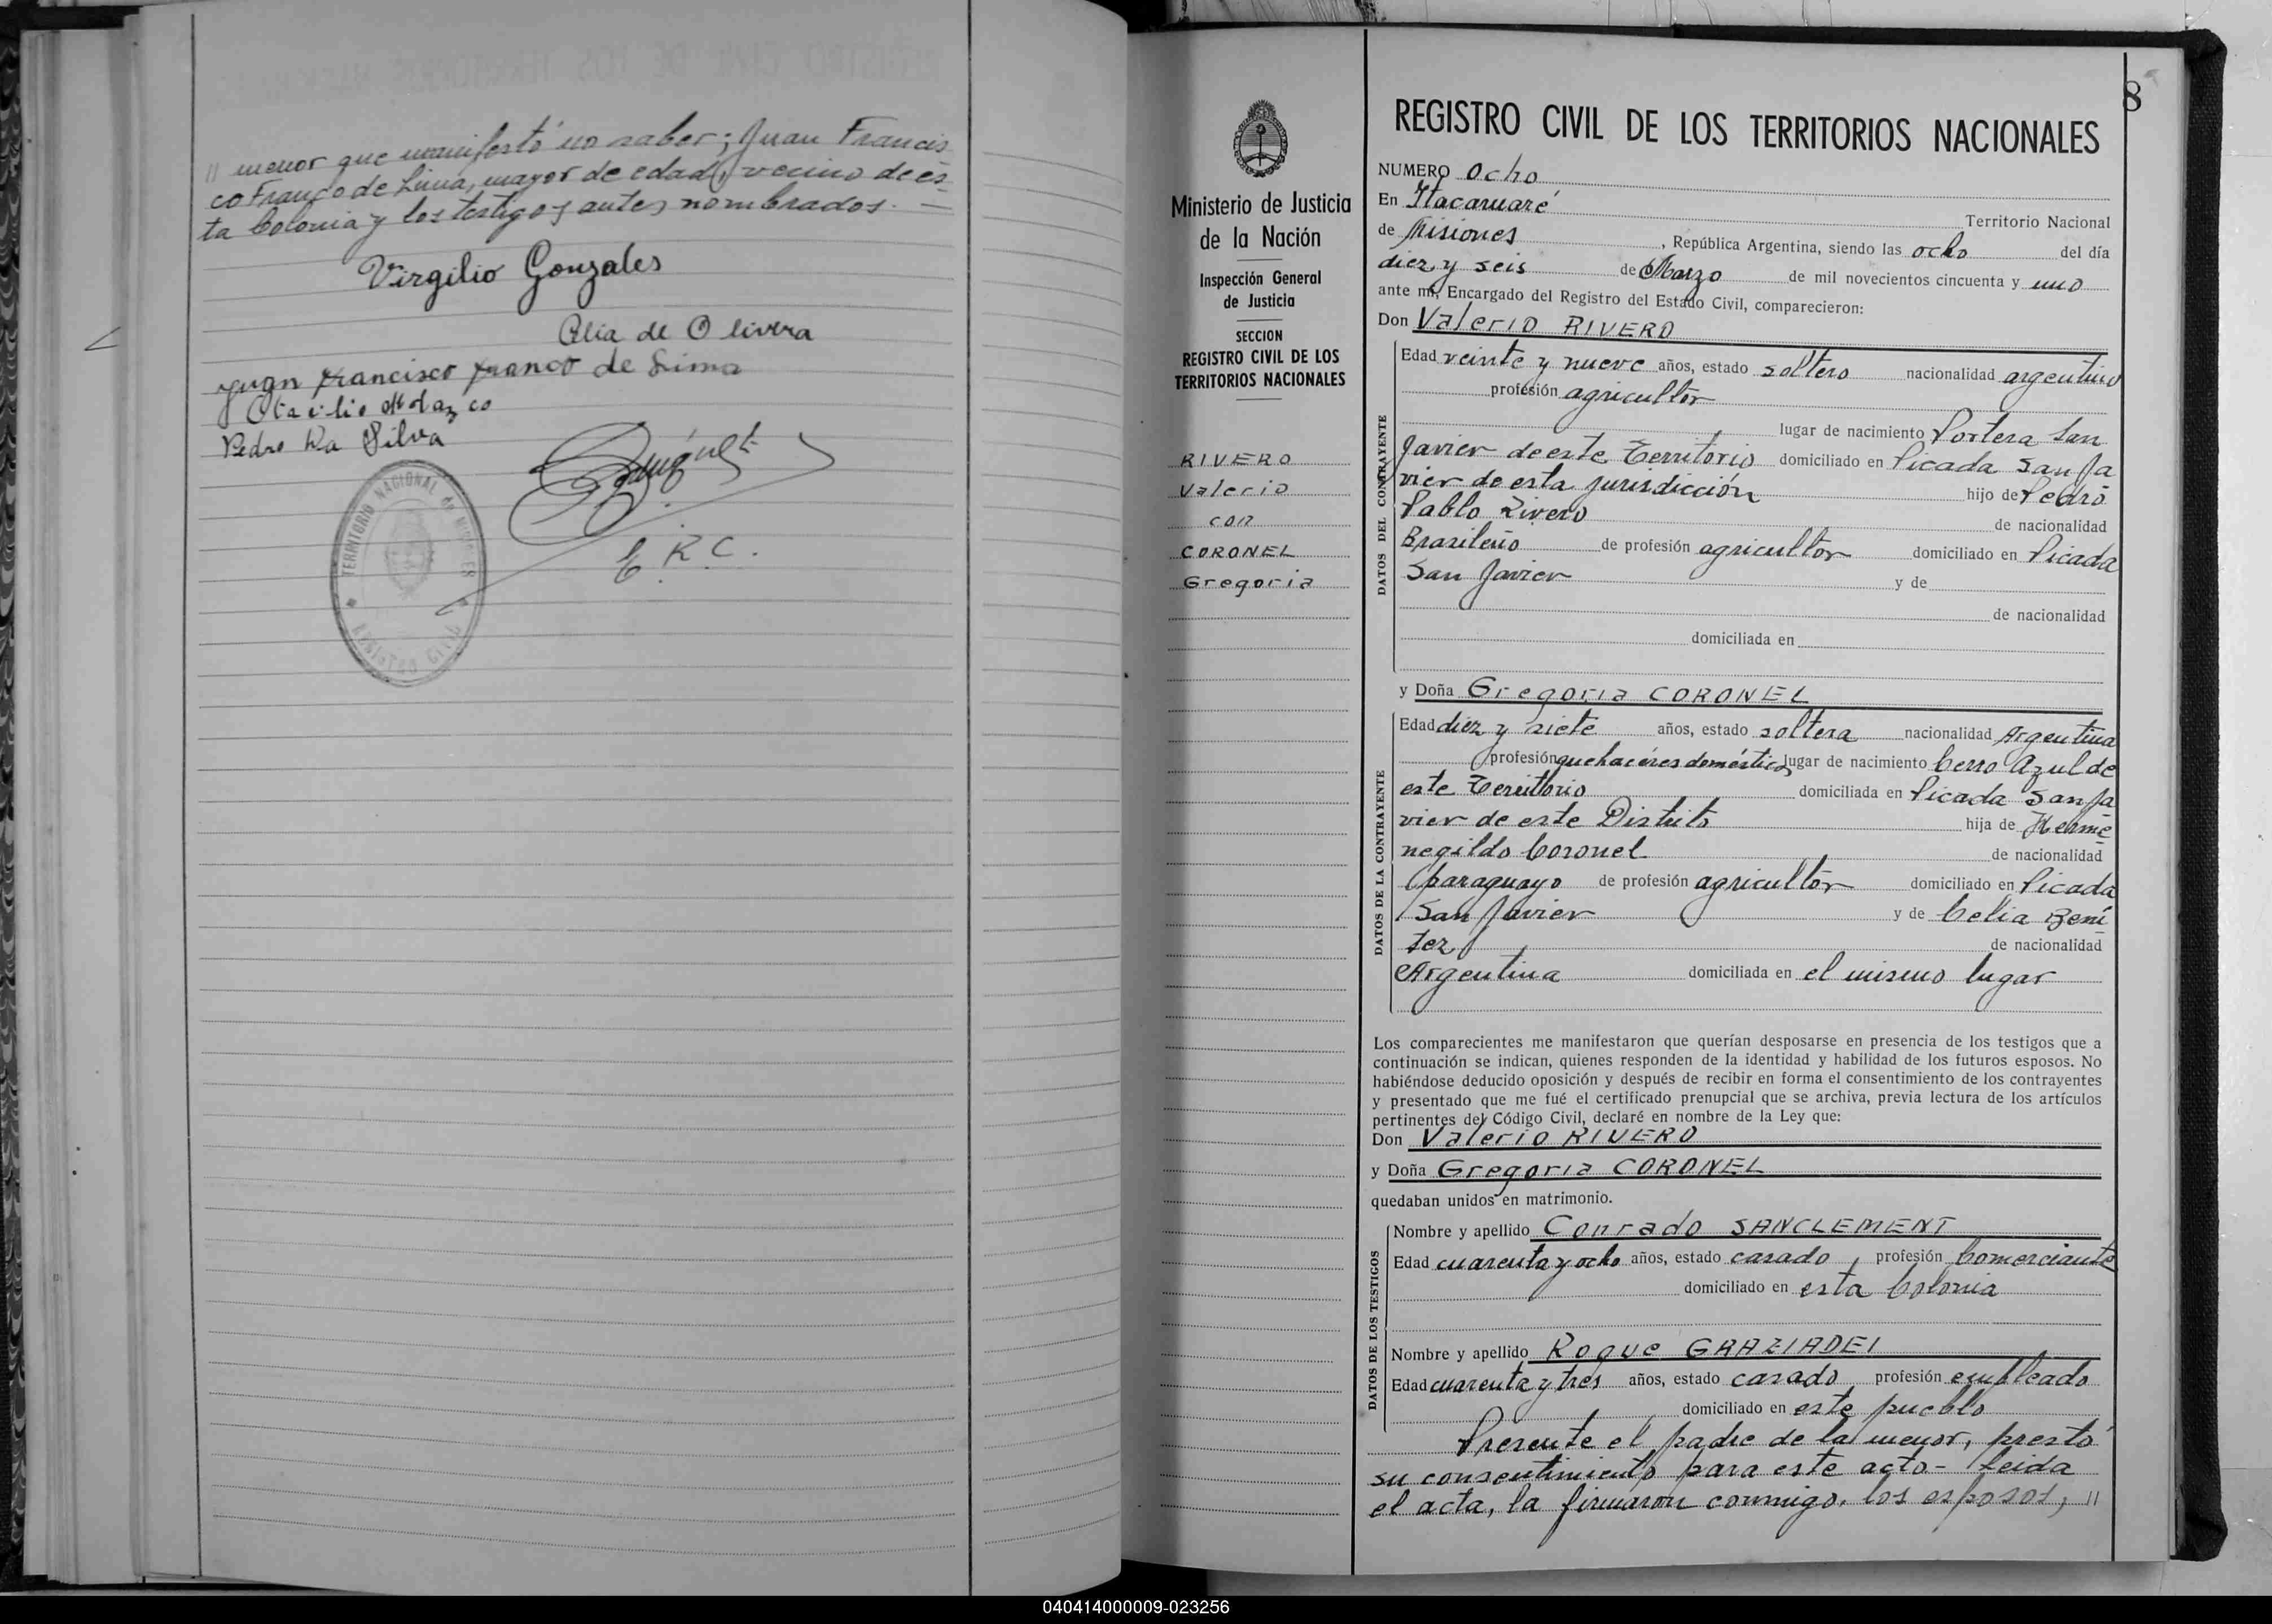 // menor que manifestó no saber; Juan Francis
co Franco de Lima, mayor de edad, vecino de és-
ta Colonia y los testigos antes nombrados. —
Virgilio Gonzales
Olivera de
Juan Francisco Franco de Lima
Pedro Da Silva
TERRITORIO NACIONAL de MISIONES
REGISTRO CIVIL
E.R.C.
8
Ministerio de Justicia
de la Nación
Inspección General
de Justicia
SECCION
REGISTRO CIVIL DE LOS
TERRITORIOS NACIONALES
RIVERO
Valerio
con
CORONEL
Gregoria
REGISTRO CIVIL DE LOS TERRITORIOS NACIONALES
NUMERO Ocho
En Itacaruaré Territorio Nacional
de Misiones, República Argentina, siendo las ocho del día
diez y seis de Marzo de mil novecientos cincuenta y uno
ante mí, Encargado del Registro del Estado Civil, comparecieron:
Don Valerio RIVERO
DATOS DEL CONTRAYENTE
Edad veinte y nueve años, estado soltero nacionalidad argentino
profesión agricultor
lugar de nacimiento Portera San
Javier de este Territorio domiciliado en Picada San Ja
vier de esta jurisdicción hijo de Pedro
Pablo Rivero de nacionalidad
Brasileño de profesión agricultor domiciliado en Picada
San Javier y de
de nacionalidad
domiciliada en
y Doña Gregoria CORONEL
DATOS DE LA CONTRAYENTE
Edad diez y siete años, estado soltera nacionalidad Argentina
profesión quehaceres domésticos lugar de nacimiento Cerro Azul de
este Territorio domiciliada en Picada San Ja
vier de este Distrito hija de Herme
negildo Coronel de nacionalidad
paraguayo de profesión agricultor domiciliado en Picada
San Javier y de Celia Bení
tez de nacionalidad
Argentina domiciliada en el mismo lugar
Los comparecientes me manifestaron que querían desposarse en presencia de los testigos que a
continuación se indican, quienes responden de la identidad y habilidad de los futuros esposos. No
habiéndose deducido oposición y después de recibir en forma el consentimiento de los contrayentes
y presentado que me fué el certificado prenupcial que se archiva, previa lectura de los artículos
pertinentes del Código Civil, declaré en nombre de la Ley que:
Don Valerio RIVERO
y Doña Gregoria CORONEL
quedaban unidos en matrimonio.
DATOS DE LOS TESTIGOS
Nombre y apellido Conrado SANCLEMENT
Edad cuarenta y ocho años, estado casado, profesión Comerciante
domiciliado en esta Colonia
Nombre y apellido Roque GRAZIADEI
Edad cuarenta y tres años, estado casado profesión empleado
domiciliado en este pueblo
Presente el padre de la menor, prestó
su consentimiento para este acto - Leída
el acta, la firmaron conmigo, los esposos, //
040414000009-023256